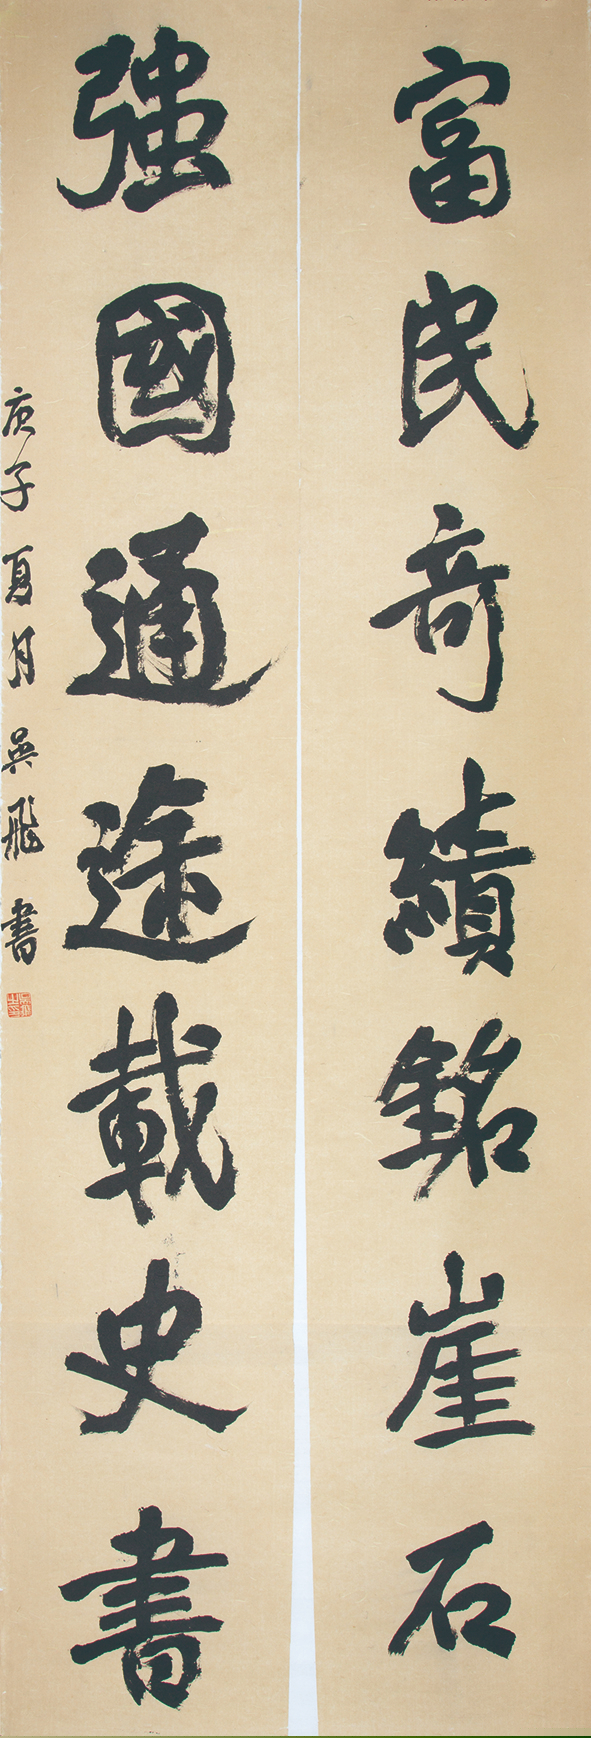 富民奇績銘崖石
強國通途載史書
庚子夏月吳飛書